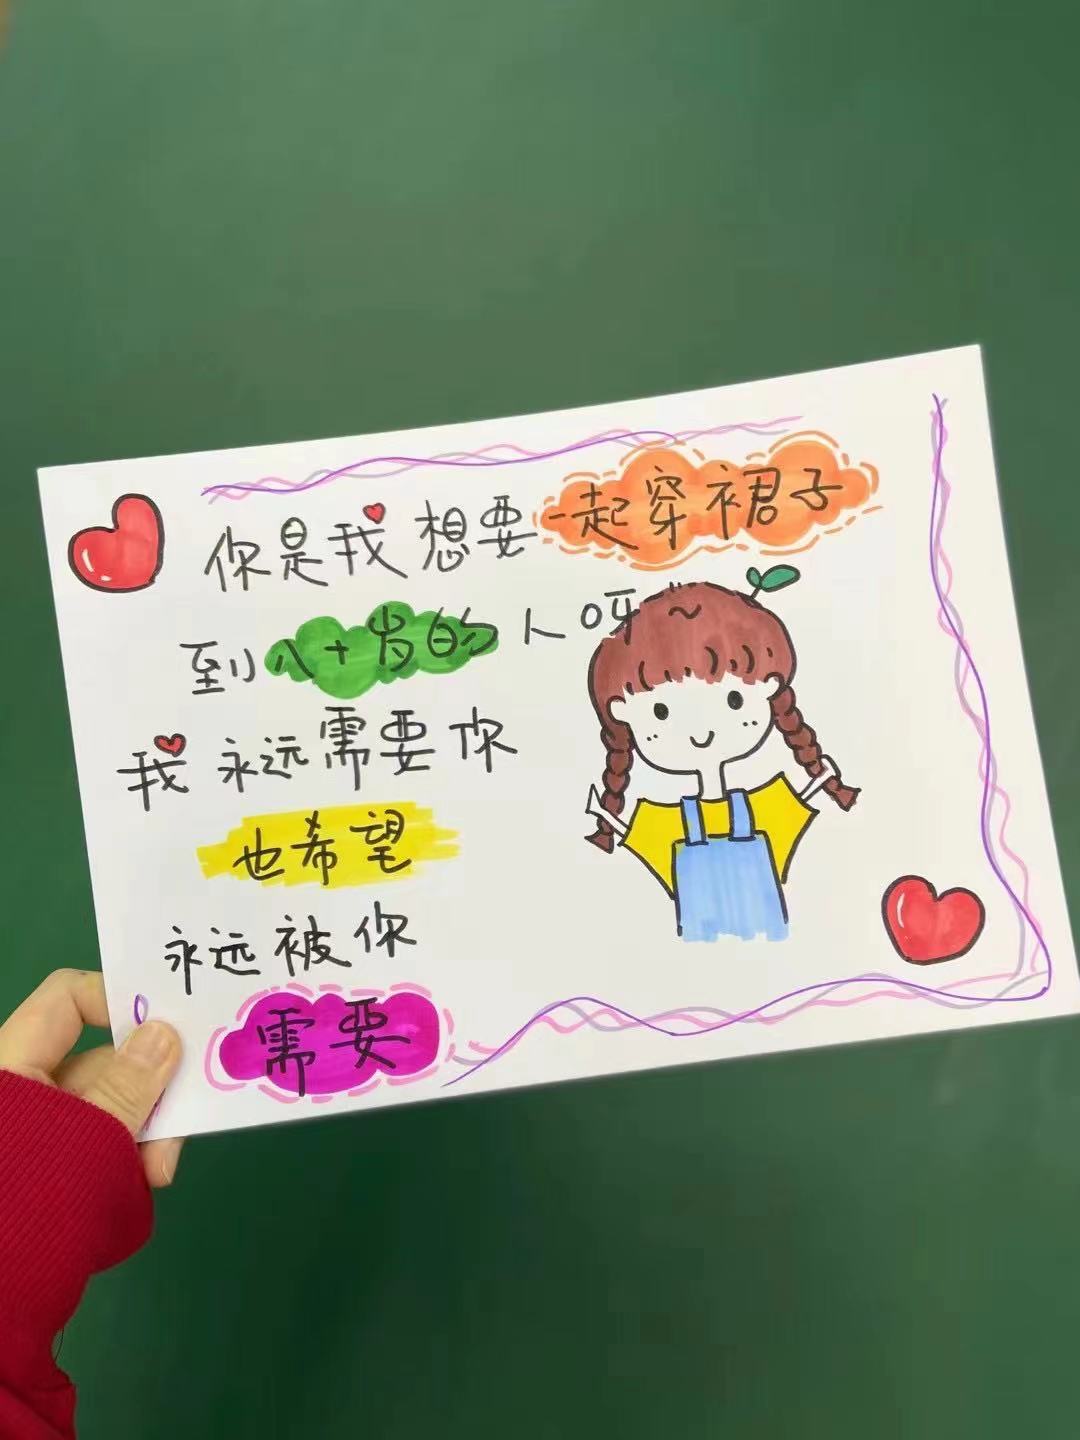 你是我想要一起穿裙子
到八十岁的人呀~
我永远需要你
也希望
永远被你
需要